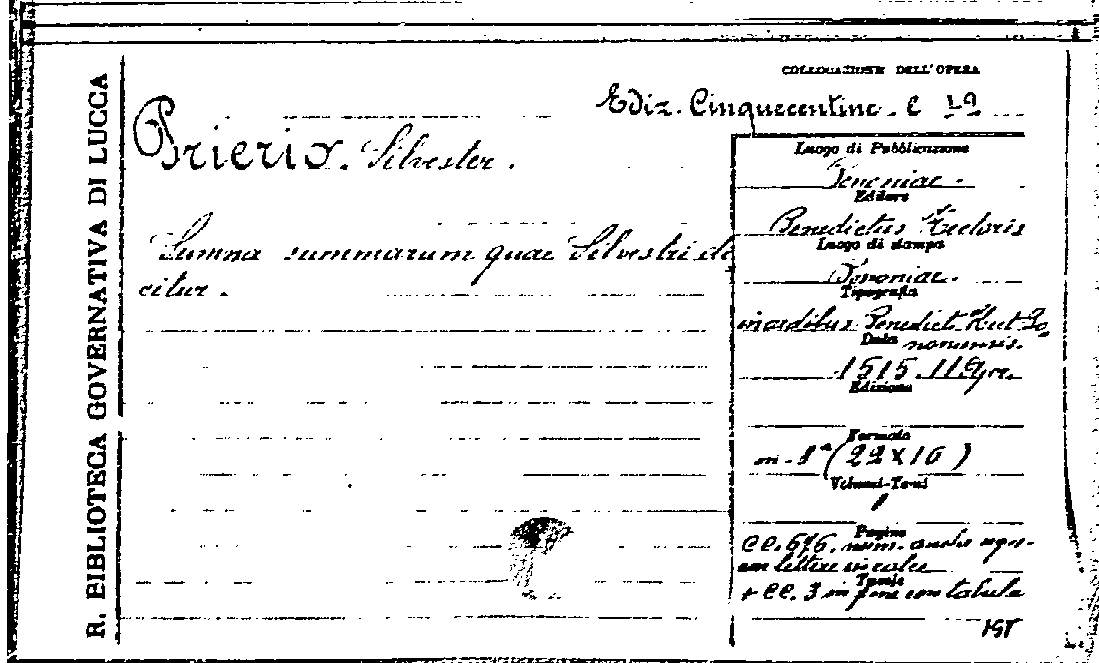 R. BIBLIOTECA GOVERNATIVA DI LUCCA
COLLOCAZIONE DELL'OPERA
Ediz. Cinquecentine. C 19
Prierio. Silvester.
Summa summarum quae Silvestri di
citur.
Luogo di Pubblicazione
Bononiae.
Editore
Benedictus Hectoris
Luogo di stampa
Bononiae.
Tipografia
in aedibus Benedict. Hect. Bo
nonensis.
Data
1515.
Edizione
Formato
(22 x 16)
Volumi-Tomi
1
Pagine
CC. 
lettere
Tavole
+ CC. 3 in fine con tabula